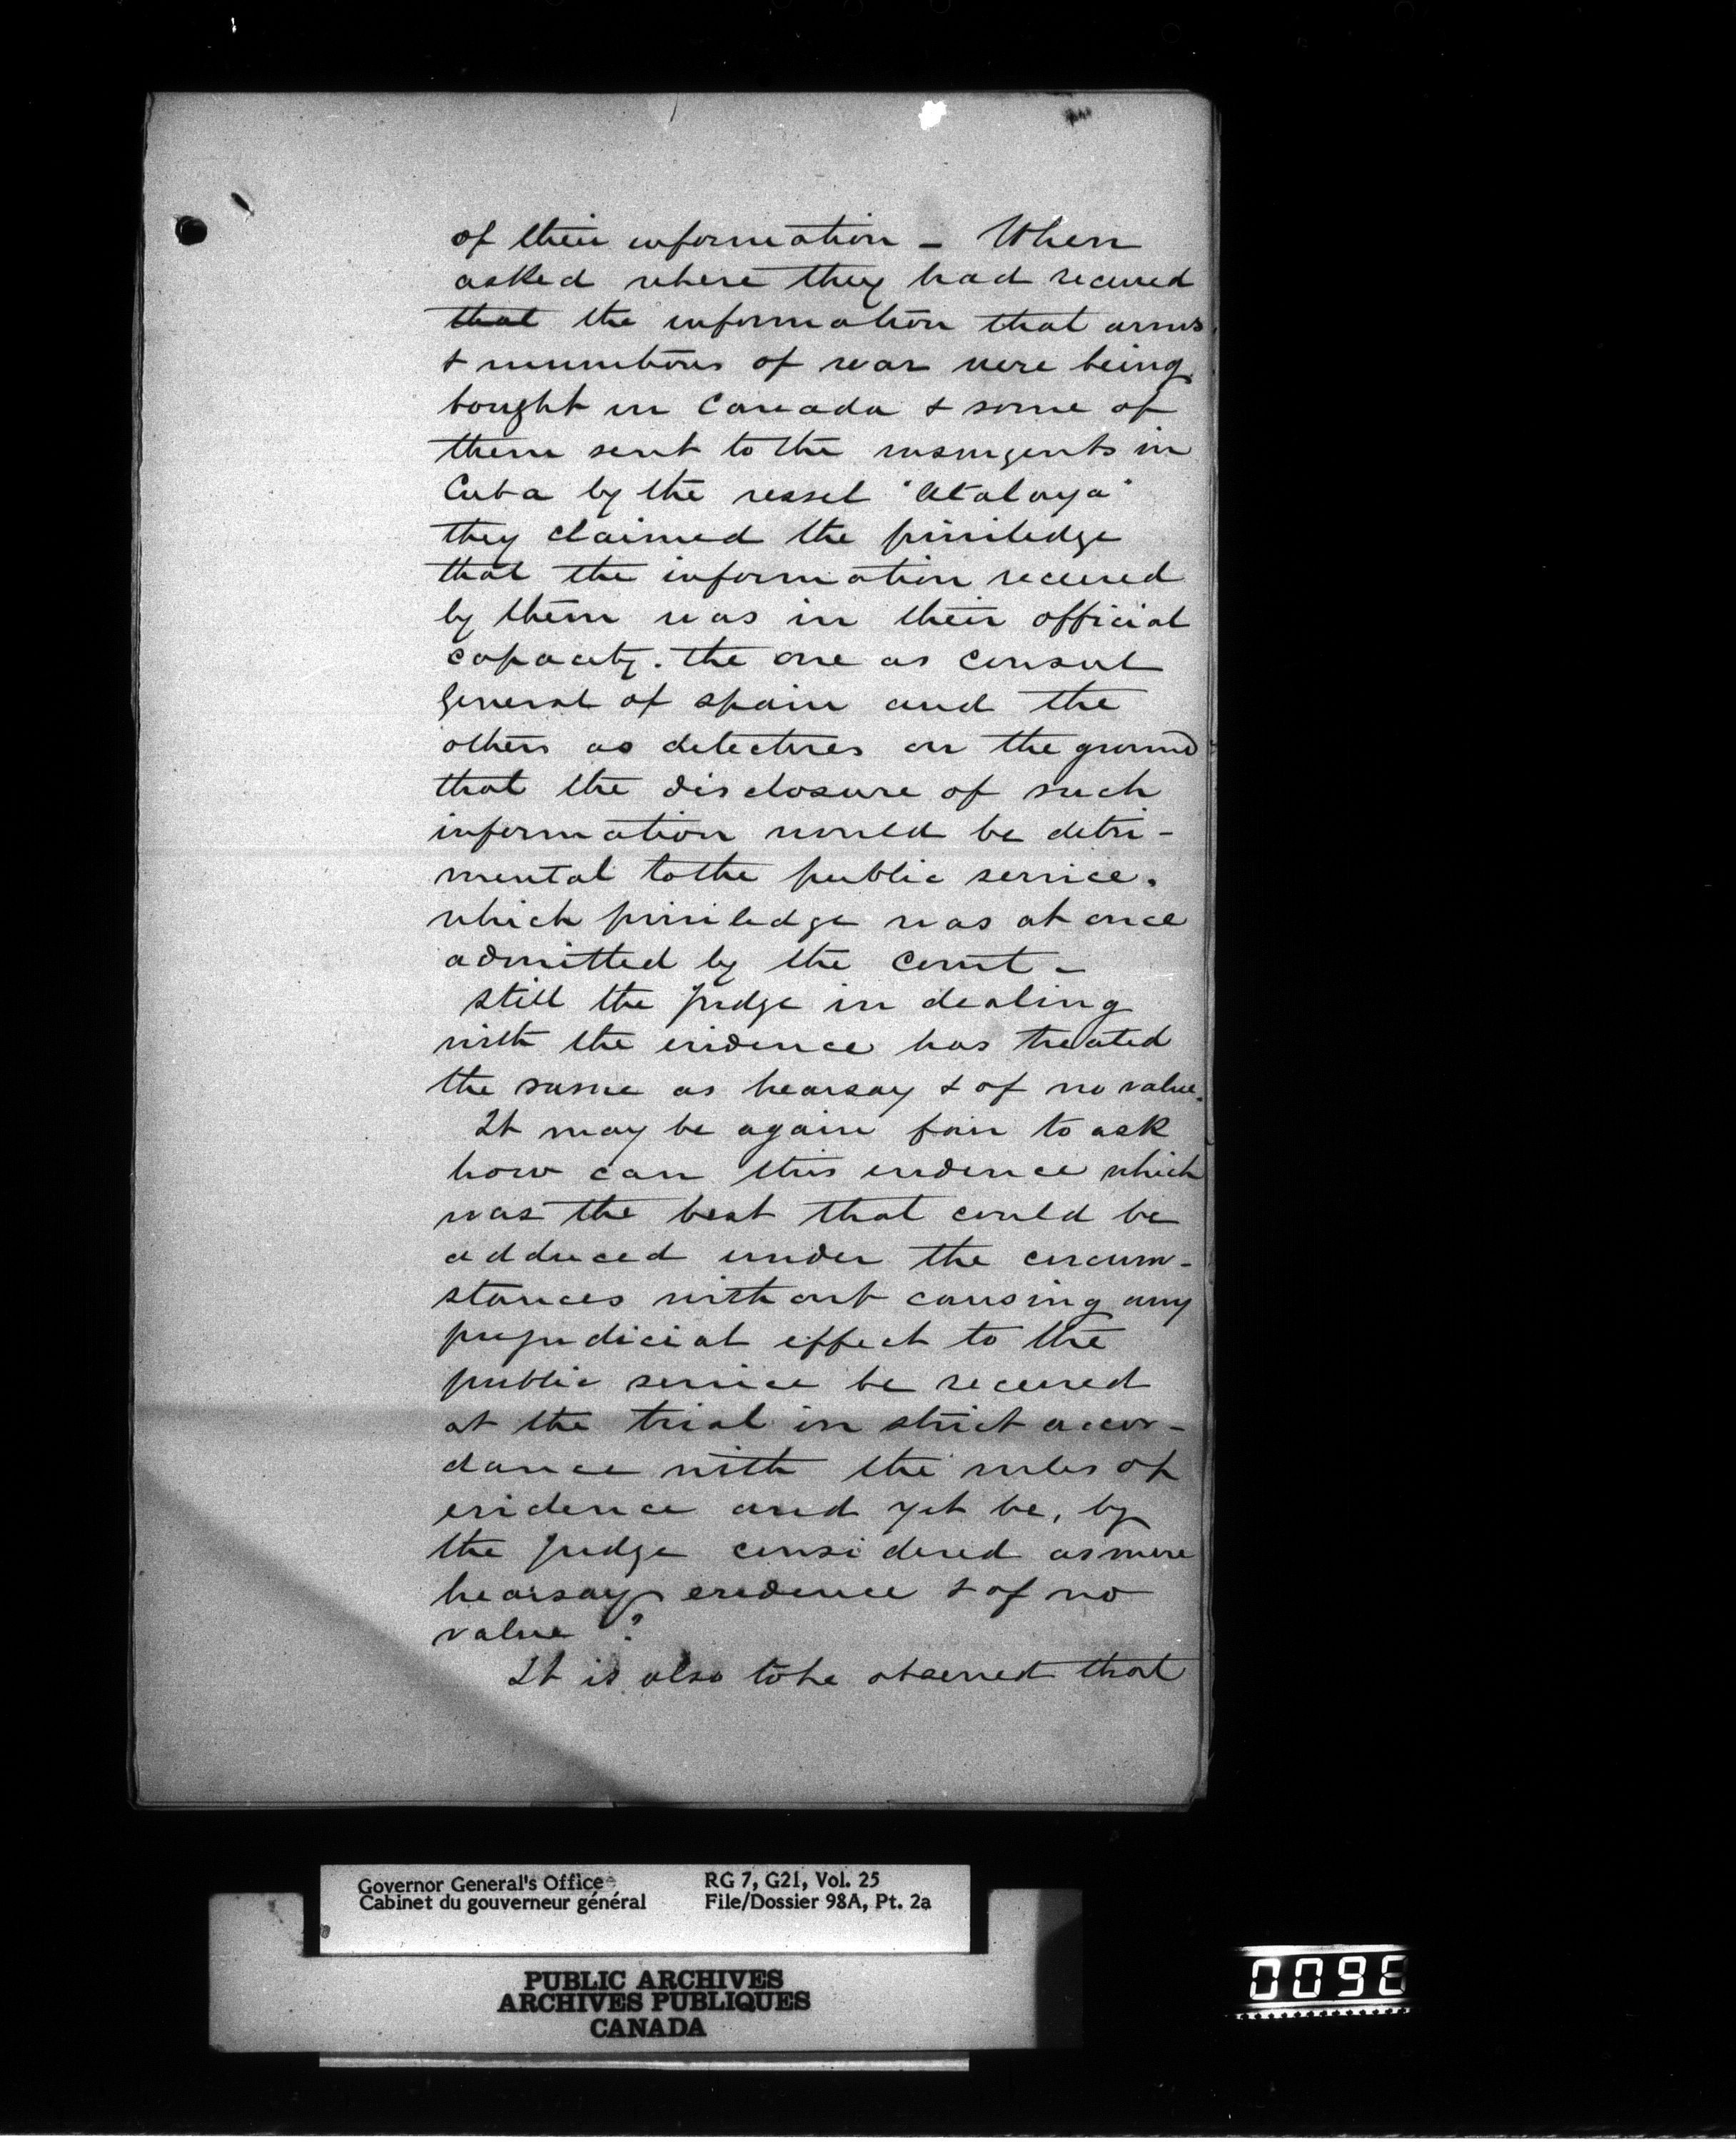 of their information - When
asked where they had received
that the information that arms
& munitions of war were being
bought in Canada & some of
them sent to the insurgents in
Cuba by the vessel "Atalaya"
they claimed the priviledge
that the information received
by them was in their official
capacity. the one as Consul
General of Spain and the
others as detectives on the ground
that the disclosure of such
information would be detri-
mental to the public service.
which priviledge was at once
admitted by the Court -
Still the Judge in dealing
with the evidence has treated
the same as hearsay & of no value.
It may be again fair to ask
how can this evidence which
was the best that could be
adduced under the circum-
stances without causing any
prejudicial effect to the
public service be received
at the trial in strict accor-
dance with the rules of
evidence and yet be, by
the Judge considered as mere
hearsay evidence & of no
value ?
It is also to be observed that
Governor General's Office RG 7, G21, Vol. 25
Cabinet du gouverneur général File/Dossier 98A, Pt. 2a
PUBLIC ARCHIVES
ARCHIVES PUBLIQUES
CANADA